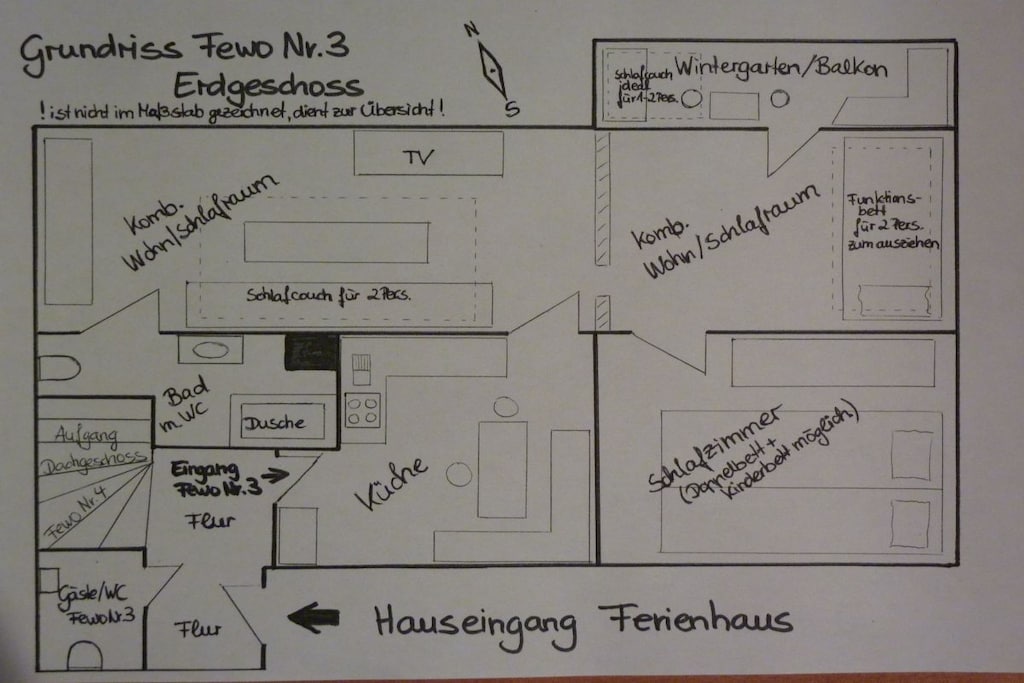 Grundriss Fewo Nr.3
Erdgeschoss
! ist nicht im Maßstab gezeichnet, dient zur Übersicht !
N
S
Schlafcouch
ideal
für 1-2 Pers.
Wintergarten/Balkon
TV
Komb.
Wohn/Schlafraum
Schlafcouch für 2 Pers.
Komb.
Wohn/Schlafraum
Funktions-
bett
für 2 Pers.
zum ausziehen
Bad
m. WC
Dusche
Aufgang
Dachgeschoss
Fewo Nr.4
Eingang
Fewo Nr.3
Flur
Küche
Schlafzimmer
(Doppelbett +
Kinderbett möglich)
Gäste/WC
Fewo Nr.3
Flur
Hauseingang Ferienhaus